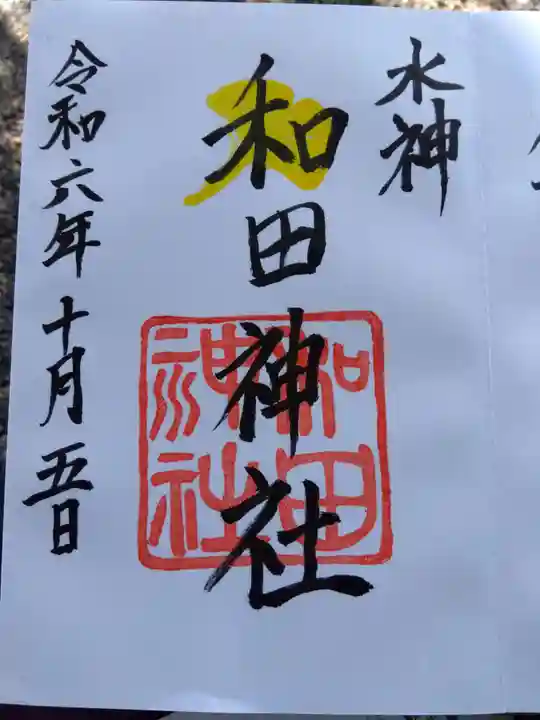 水神
和田神社
令和六年十月五日
和田
神社